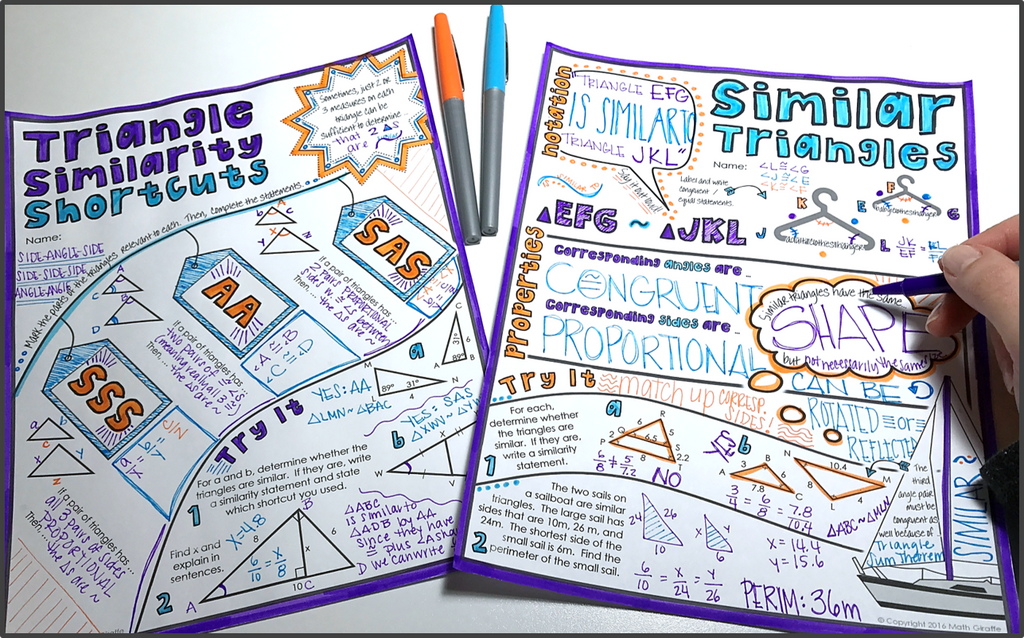 Triangle
Similarity
Shortcuts
Name:
SIDE-ANGLE-SIDE
SIDE-SIDE-SIDE
ANGLE-ANGLE
Sometimes, just 2 or
3 measures on each
triangle can be
sufficient to determine
that 2 △s
are ~
Mark the parts of the triangles relevant to each. Then, complete the statements.
SAS
If a pair of triangles has...
2 pairs proportional
Then...
the △s are ~
AA
If a pair of triangles has
two pairs of ≅ ∠s
(meaning really all 3 ≅)
Then...
the △s are ~
SSS
If a pair of triangles has...
all 3 pairs of sides
PROPORTIONAL
Then...
the △s are ~
Try It
For a and b, determine whether the
triangles are similar. If they are, write
a similarity statement and state
which shortcut you used.
1
a
89°
31°
YES: AA
△LMN ~ △BAC
b
YES: SAS
2
Find x and
explain in
sentences.
x=4.8
6/10 = x/8
8
6
x
10
A
B
C
D
△ABC
is similar to
△ADB by AA
since they have
we can write
notation
"TRIANGLE EFG
IS SIMILAR TO
TRIANGLE JKL"
Say it out loud!
Similar
Triangles
Name:
∠L≅∠G
∠J≅∠E
∠K≅∠F
Label and write
congruent /
equal statements.
IS SIMILAR TO
△EFG ~ △JKL
J
K
L
E
F
G
JK/EF =
Properties
Corresponding angles are...
CONGRUENT
≅
Corresponding sides are...
PROPORTIONAL
Similar triangles have the same
SHAPE
but not necessarily the same
CAN BE
ROTATED OR
REFLECTED
Try It
match up CORRESP.
SIDES!
1
For each,
determine whether
the triangles are
similar. If they are,
write a similarity
statement.
a
6/8 ≠ 5/7.2
NO
YES
b
7.8
10.4
3/4 = 6/8 = 7.8/10.4
△ABC ~ △MLN
The
third
angle pair
must be
congruent as
well because of
Triangle
Sum Theorem
SIMILAR ~
2
The two sails on
a sailboat are similar
triangles. The large sail has
sides that are 10m, 26 m, and
24m. The shortest side of the
small sail is 6m. Find the
perimeter of the small sail.
24
26
10
x
y
6
6/10 = x/24 = y/26
x = 14.4
y = 15.6
PERIM: 36m
© Copyright 2016 Math Giraffe